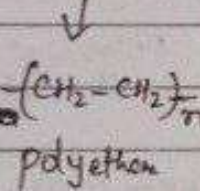 -(CH₂-CH₂)-n
polyethen